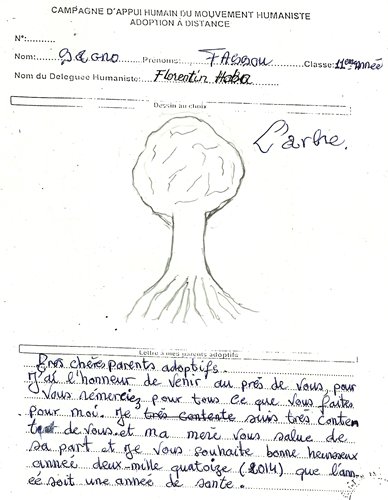 CAMPAGNE D'APPUI HUMAIN DU MOUVEMENT HUMANISTE
ADOPTION À DISTANCE
N°:
Nom: Prénoms: Classe: 11ème année
Nom du Délégué Humaniste: Florentin Haba
Dessin au choix
L'arbre.
Lettre à mes parents adoptifs
Très chères parents adoptifs.
J'ai l'honneur de venir au près de vous, pour
vous rémerciez pour tous ce que vous faites
pour moi. Je très contente suis très conten
te de vous. et ma meré vous salue de
sa part et je vous souhaite bonne heureuse
année deux-mille quatoize (2014) que l'ann
ée soit une année de santé.